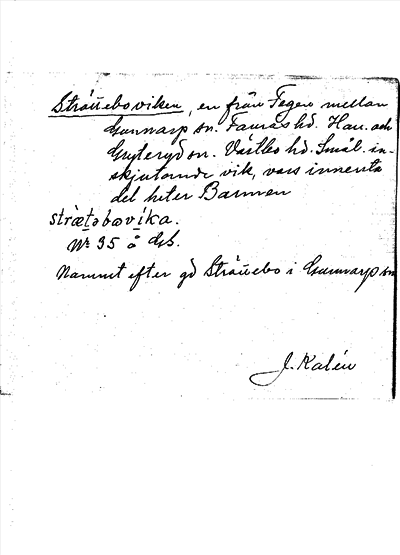 Sträteboviken, en från Fegen mellan
Gunnarp sn. Faurås hd. Hall. och
Gryteryd sn. Västbo hd. Smål. in-
skjutande vik, vars innersta
del heter Barmen
stràetəbωvíka.
Nr 35 å dss.
Namnet efter gd Strätebo i Gunnarp sn
J. Kalén